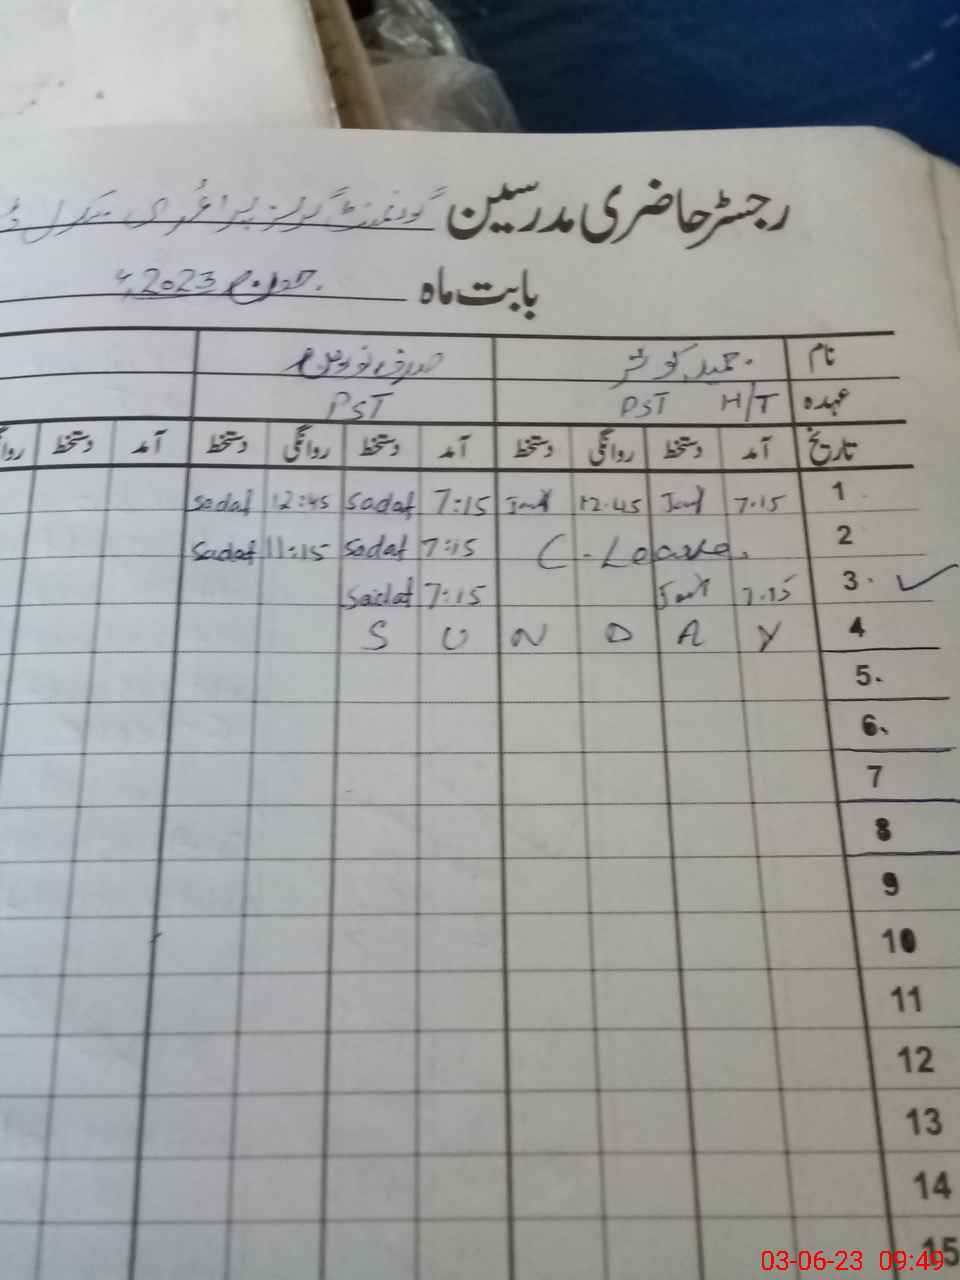 رجسٹر حاضری مدرسین گورنمنٹ گرلز پرائمری سکول
بابت ماہ جون 2023ء
نام
عہدہ PST H/T PST
تاریخ آمد دستخط روانگی دستخط آمد دستخط روانگی دستخط آمد دستخط روا
1 7.15 12.45 7:15 Sadaf 12:45 Sadaf
2 C-Leave. 7:15 Sadaf 11:15 Sadaf
3. 7.15 7:15 Sadaf
4 S U N D A Y
5.
6.
7
8
9
10
11
12
13
14
15
03-06-23 09:49